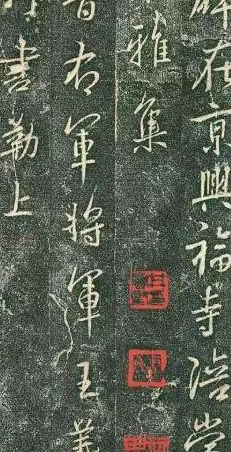 碑在京興福寺陪常
雅集
晉右軍將軍王羲
書勒上